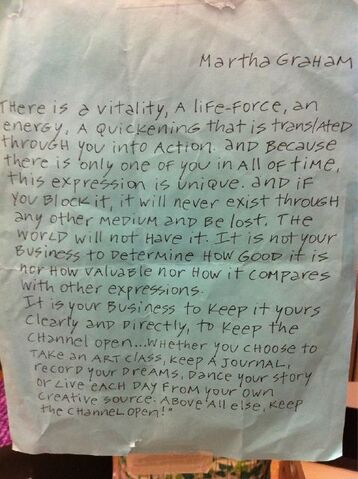 Martha GraHaM
THere is a vitality, A liFe-Force, an
energy, A quickening that is translated
throuGH you into Action. and Because
there is only one of you in All of time,
this expression is unique. and iF
you Block it, it will never exist throuGH
any other MeDiuM and Be lost. THe
world will not Have it. It is not your
Business to Determine How GooD it is
nor How valuable nor How it compares
with other expressions.
It is your Business to Keep it yours
clearly and Directly, to Keep the
cHannel open...WHetHer you cHoose to
take an art class, Keep a journal,
record your Dreams, Dance your story
or Live eacH Day From your own
creative source. Above All else, Keep
the cHannel open!"